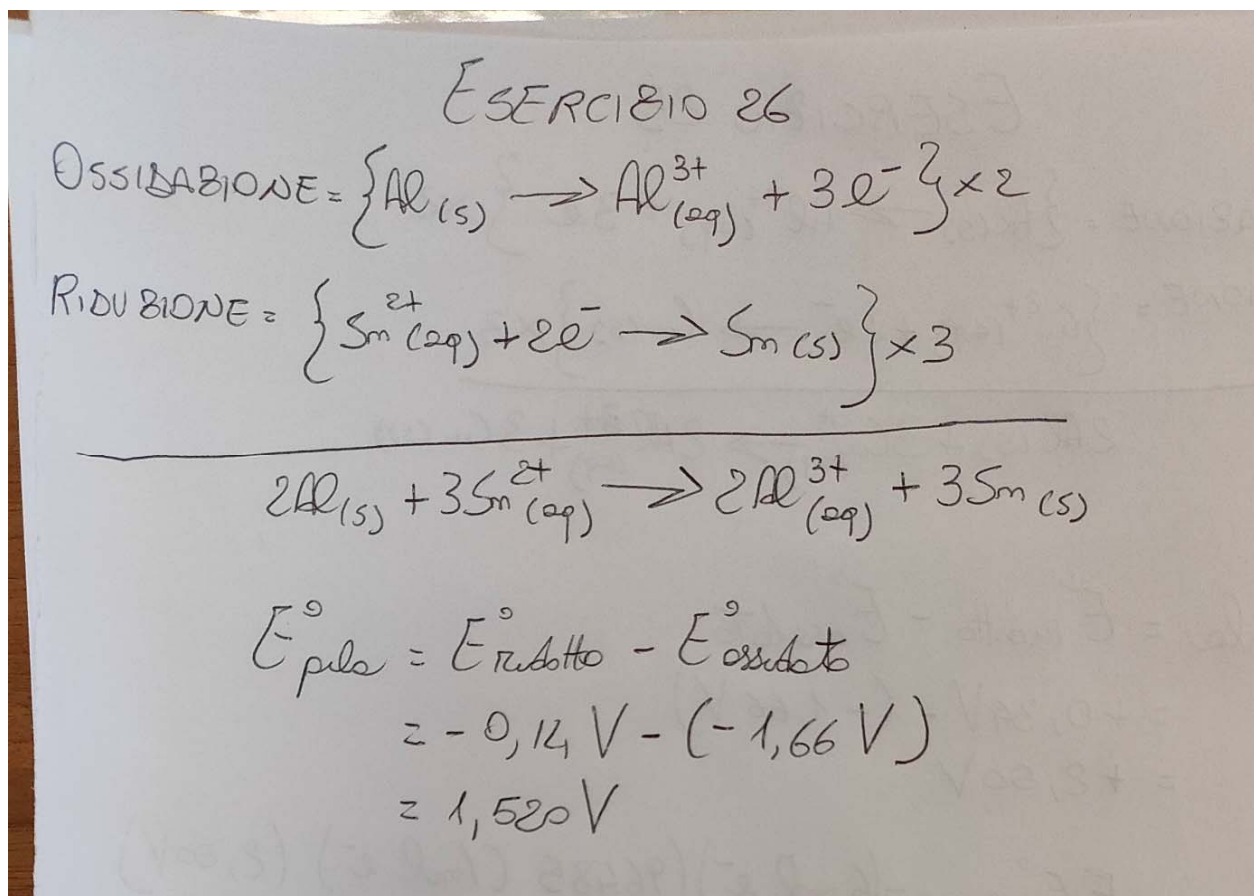 ESERCIZIO 26
OSSIDAZIONE = {Al(s) → Al³⁺(aq) + 3e⁻} ×2
RIDUZIONE = {Sn²⁺(aq) + 2e⁻ → Sn(s)} ×3
2Al(s) + 3Sn²⁺(aq) → 2Al³⁺(aq) + 3Sn(s)
E°pila = E°ridotto - E°ossidato
= - 0,14 V - (-1,66 V)
= 1,520 V